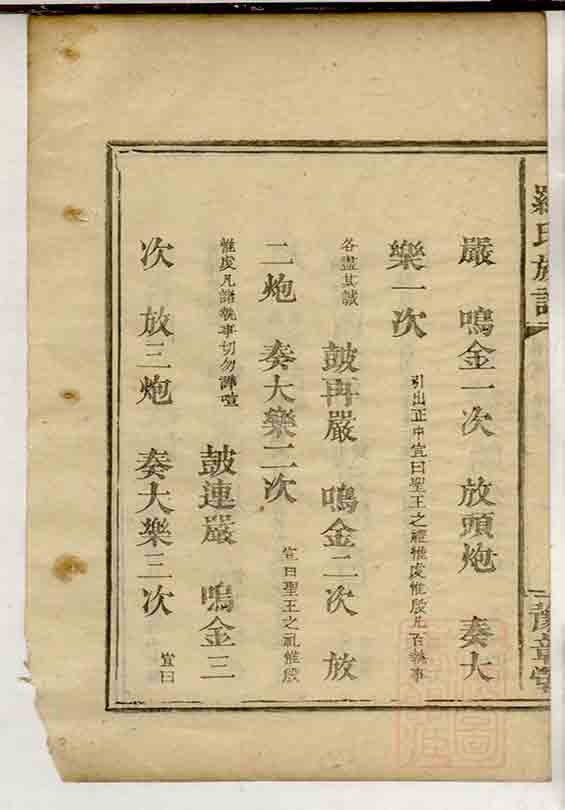 羅氏族譜
豫章堂
嚴 鳴金一次 放頭炮 奏大
樂一次 引出正中宣曰聖王之禮惟虔惟殷凡百執事
各盡其誠 鼓再嚴 鳴金二次 放
二炮 奏大樂二次 宣曰聖王之礼惟殷
惟虔凡諸執事切勿譁喧 鼓連嚴 鳴金三
次 放三炮 奏大樂三次 宣曰